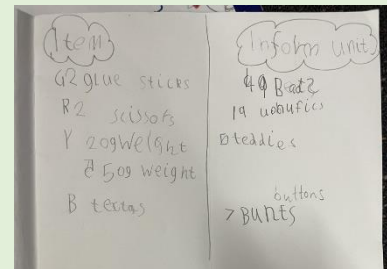 Item
G2 glue sticks
R2 scissors
Y 20g Weight
50g weight
B textas
Inform unit
teddies
buttons
7 Bunts